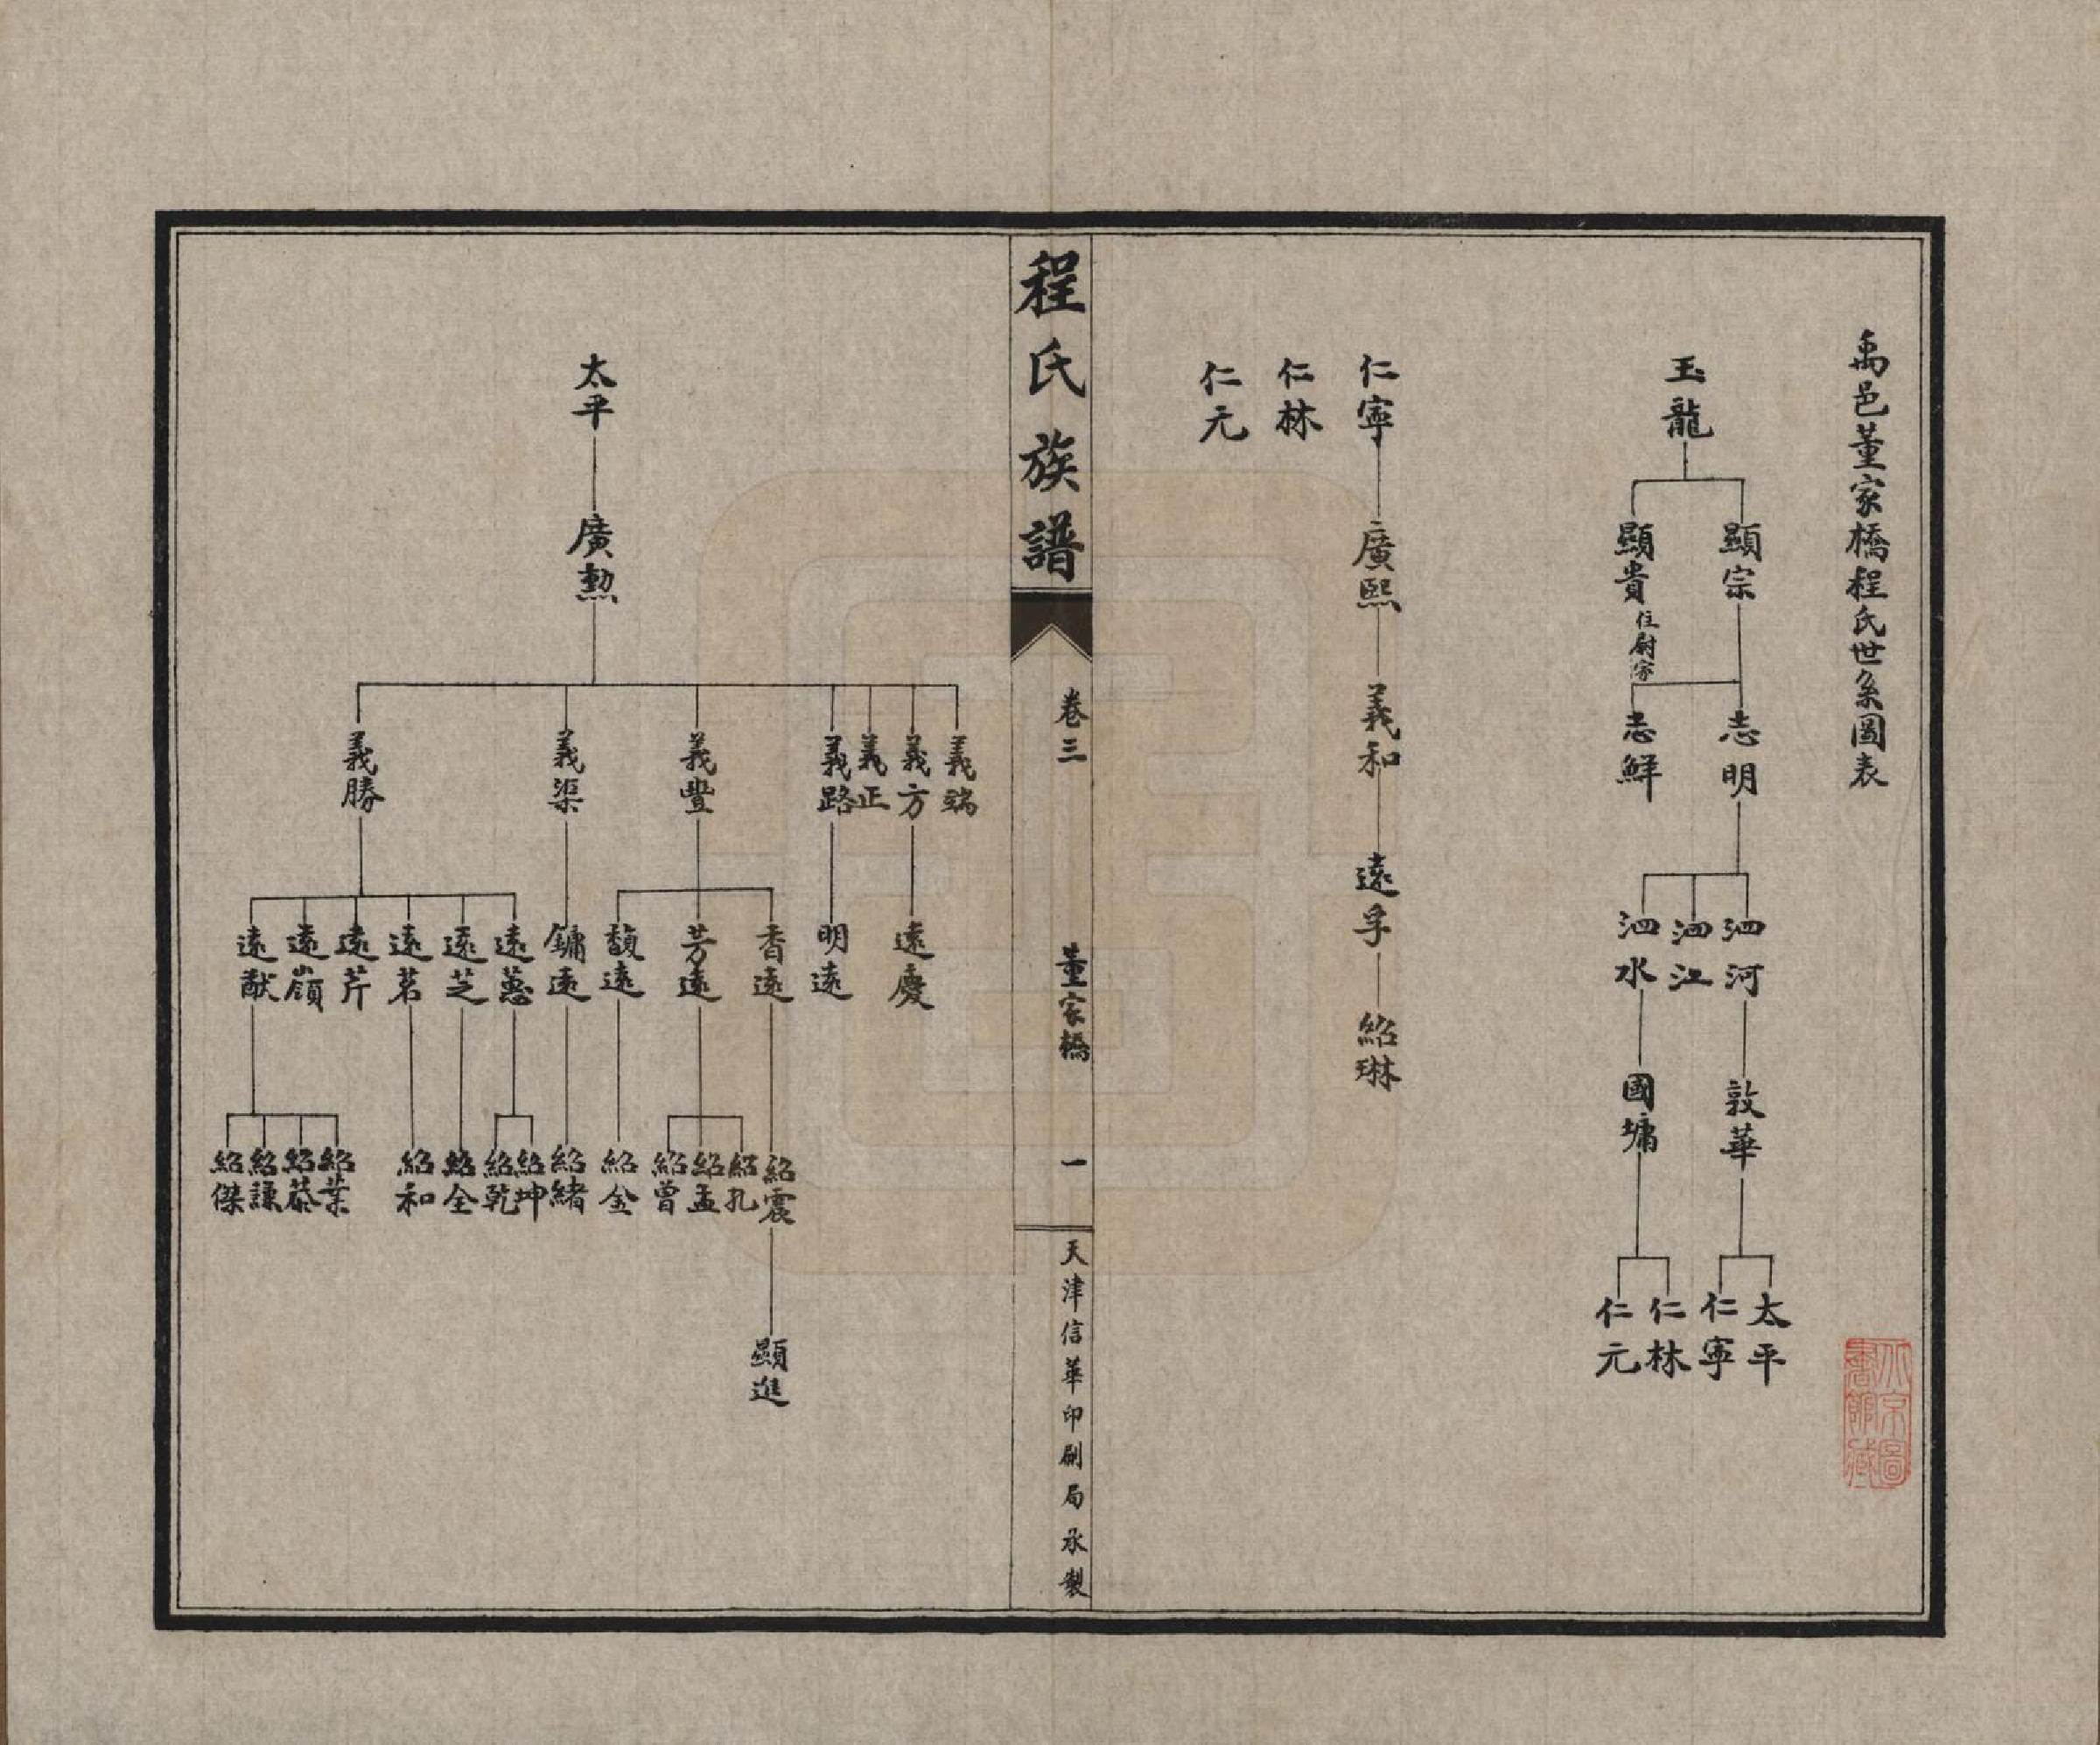 禹邑董家橋程氏世系圖表
玉龍
顯宗
顯貴 住尉家
志明
志鮮
泗河
泗江
泗水
敦華
國墉
太平
仁寧
仁林
仁元
仁寧
廣熙
義和
遠孚
紹琳
仁林
仁元
程氏族譜
卷三
董家橋
一
天津信華印刷局承製
太平
廣勲
義端
義方
義正
義路
義豐
義渠
義勝
遠慶
明遠
香遠
芳遠
馥遠
鏞遠
遠蔥
遠芝
遠茗
遠芹
遠嶺
遠猷
紹震
紹孔
紹孟
紹曾
紹金
紹緒
紹坤
紹乾
紹全
紹和
紹業
紹恭
紹謙
紹傑
顯進
北京圖書館藏